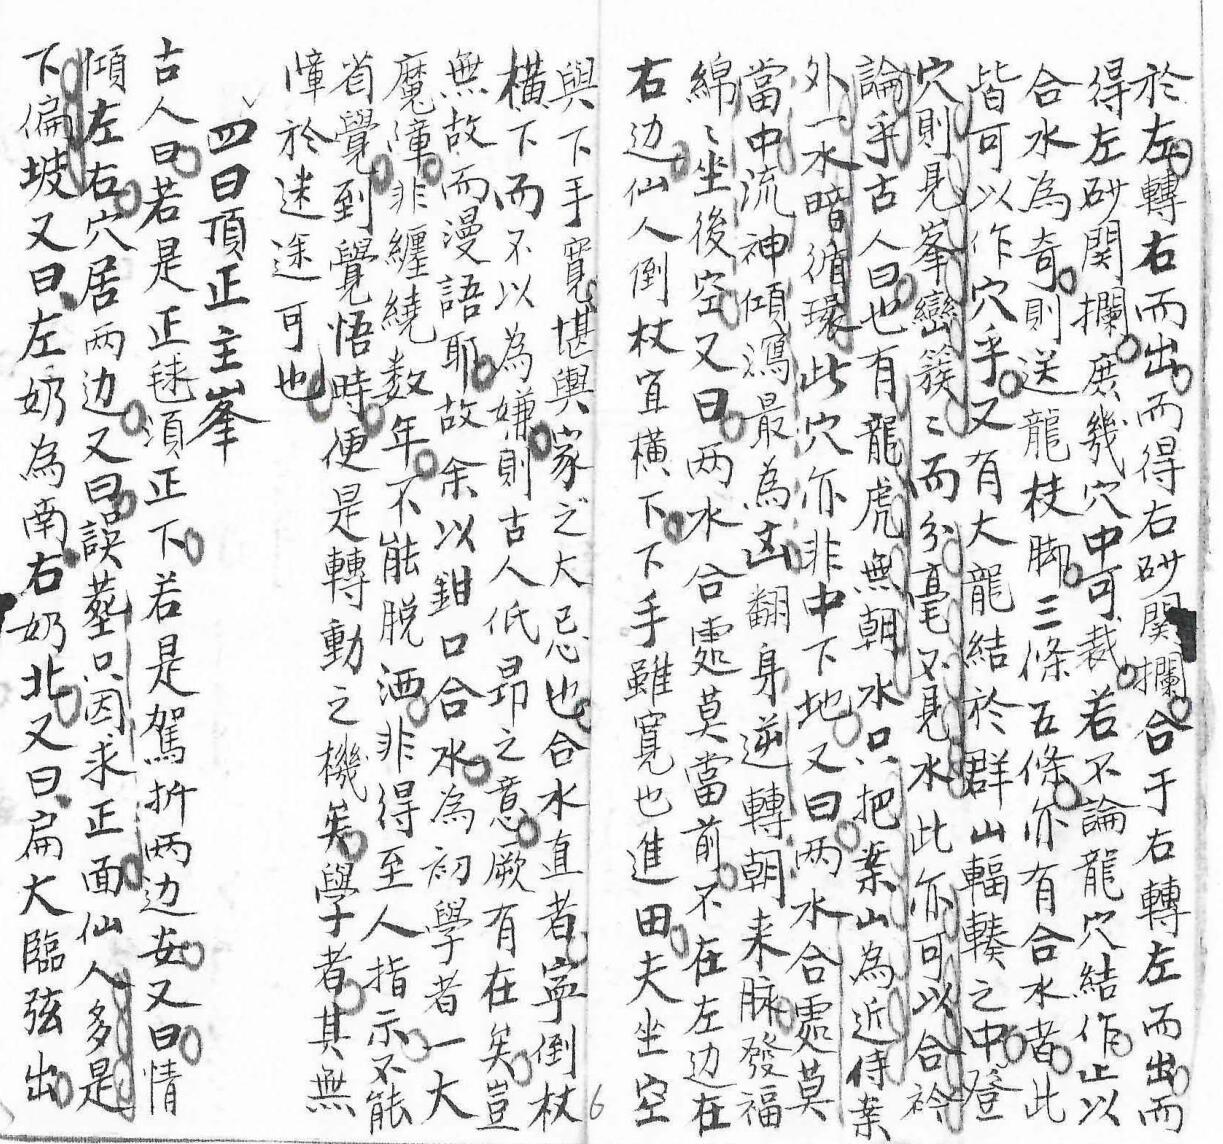 於左轉右而出而得右砂関攔合于右轉左而出而
得左砂関攔庶幾穴中可裁若不論龍穴結作止以
合水為奇則送龍杖脚三條五條亦有合水者此
皆可以作穴乎又有大龍結於群山輻輳之中登
穴則見峯巒簇〻而分毫不見水此亦可以合衿
論乎古人曰也有龍虎無朝水只把案山為近侍案
外一水暗循環此穴亦非中下地又曰两水合處莫
當中流神傾瀉最為凶翻身逆轉朝来脉發福
綿〻坐後空又曰两水合處莫當前不在左边在
右边仙人倒杖宜橫下下手雖寬也進田夫坐空
與下手寬堪輿家之大忌也合水直者寧倒杖
橫下而不以為嫌則古人低昂之意厥有在矣豈
無故而漫語耶故余以鉗口合水為初學者一大
魔瘴非纏繞数年不能脫洒非得至人指示不能
省覺到覺悟時便是轉動之機矣學者其無
瘴於迷途可也
四曰頂正主峯
古人曰若是正毬須正下若是駕折两边安又曰情
傾左右穴居两边又曰誤塟只因求正面仙人多是
下偏坡又曰左奶為南右奶北又曰扁大臨弦出
6